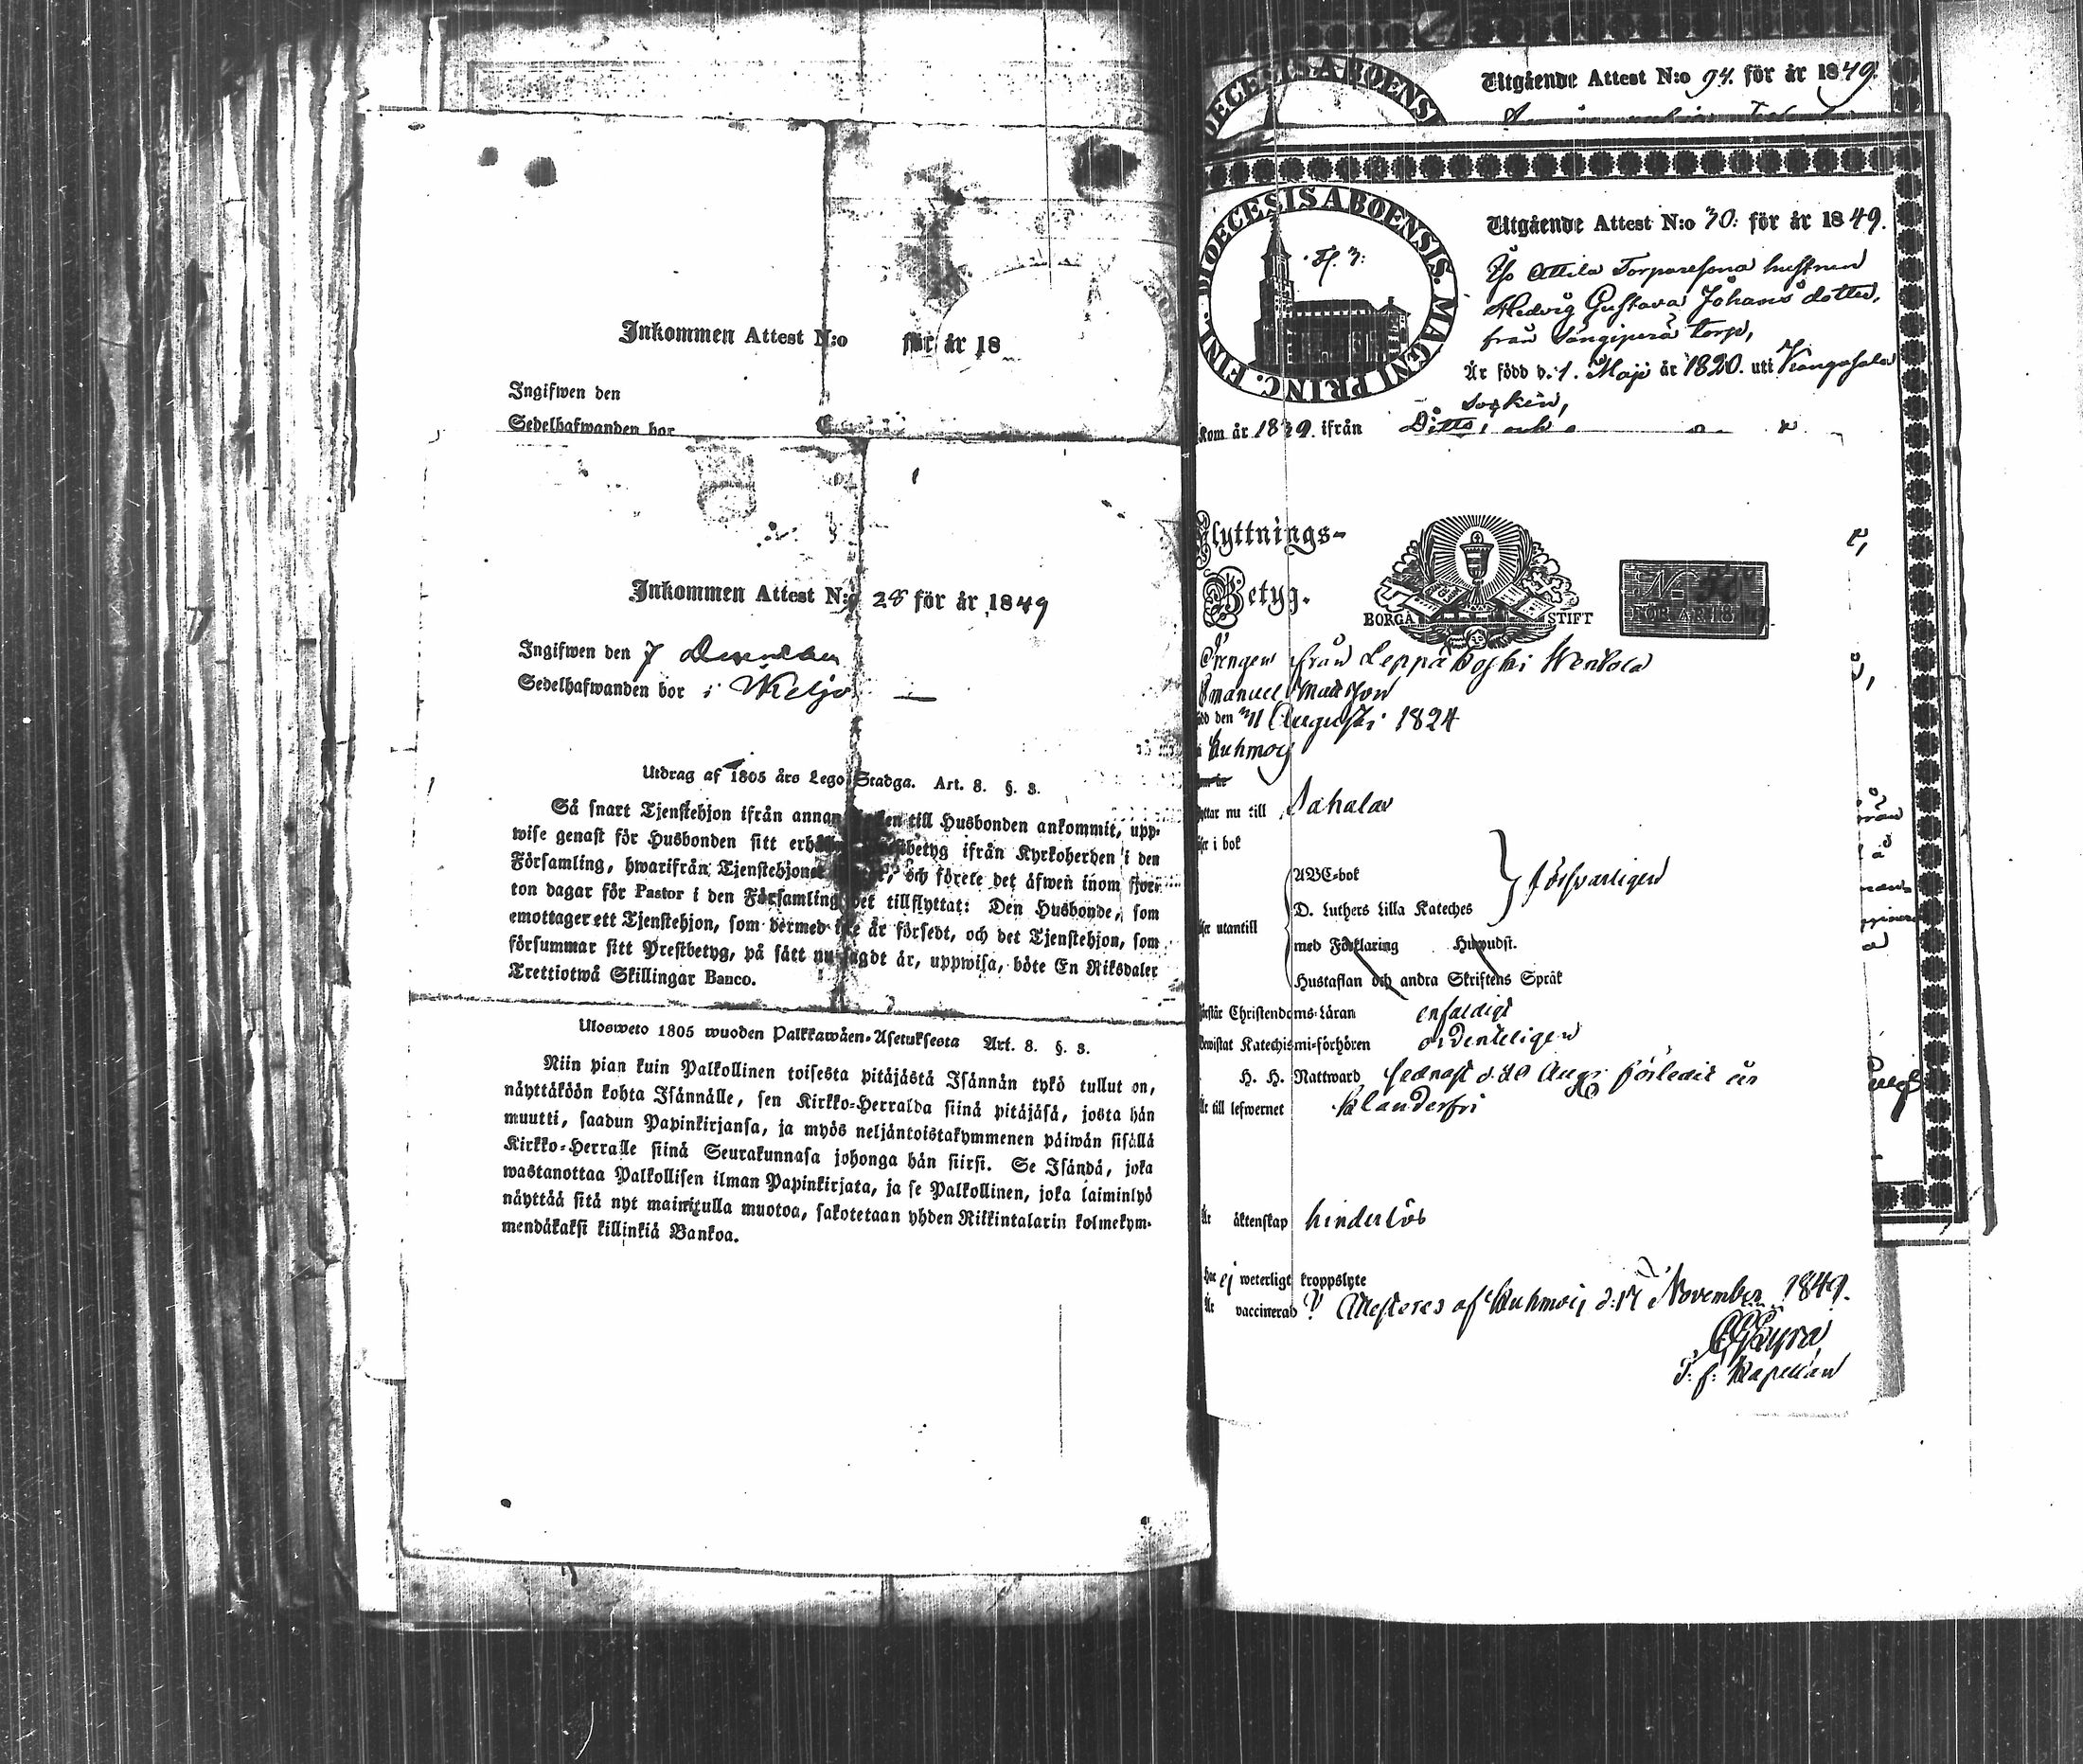 Inkommen Attest N:o för år 18
Ingifwen den
Sedelhafwanden bor
Inkommen Attest N:o 28 för år 1849
Ingifwen den 7 December
Sedelhafwanden bor i Wäljo
Utdrag af 1805 års Lego-Stadga. Art. 8. §. 3.
Så snart Tjenstehjon ifrån annan till Husbonden ankommit, upp-
wise genast för Husbonden sitt ifrån Kyrkoherden i den
Församling, hwarifrån Tjenstehjonet och förete det äfwen inom fjor-
ton dagar för Pastor i den Församling det tillflyttat: Den Husbonde, som
emottager ett Tjenstehjon, som dermed icke är försedt, och det Tjenstehjon, som
försummar sitt Prestbetyg, på sätt nu sagdt är, uppwisa, böte En Riksdaler
Trettiotwå Skillingar Banco.
Ulosweto 1805 wuoden Palkkawäen-Asetuksesta Art. 8. §. 3.
Niin pian kuin Palkollinen toisesta pitäjästä Isännän tykö tullut on,
näyttäköön kohta Isännälle, sen Kirkko-Herralda siinä pitäjäsä, josta hän
muutti, saadun Papinkirjansa, ja myös neljäntoistakymmenen päiwän sisällä
Kirkko-Herralle siinä Seurakunnasa johonga hän siirsi. Se Isändä, joka
wastanottaa Palkollisen ilman Papinkirjata, ja se Palkollinen, joka laiminlyö
näyttää sitä nyt mainitulla muotoa, sakotetaan yhden Rikkintalarin kolmekym-
mendäkaksi killinkiä Bankoa.
DIOECESIS ABOENSIS
Utgående Attest N:o 94. för år 1849.
DIOECESIS ABOENSIS. MAGNI PRINC. FINL.
Utgående Attest N:o 30: för år 1849.
Attila Torparesona hustrun
Hedvig Gustava Johansdotter,
från torp,
Är född d. 1. Maji år 1820. uti Kangasala
Socken,
Kom år 1839. ifrån Ditto, och
Flyttnings-
Betyg.
BORGÅ STIFT
N:o
FÖR ÅR 18
Drengen från Leppäkoski Wentola
Emanuel Matsson
född den 11 Augusti 1824
i Kuhmois
flyttar nu till Sahalax
läser i bok
ABC-bok
D. Luthers Lilla Kateches
försvarligen
läser utantill
med Förklaring Huwudst.
Hustaflan och andra Skriftens Språk
förstår Christendoms-läran enfaldigt
bewistat Katechismi-förhören ordenteligen
H. H. Nattward sednast d. 20 Aug: förledit år
Är till lefwernet klanderfri
Är äktenskap hinderlös
har ej weterligt kroppslyte
Är vaccinerad? Attesteres af Kuhmois d: 17 November 1849.
T: f: Kapellan